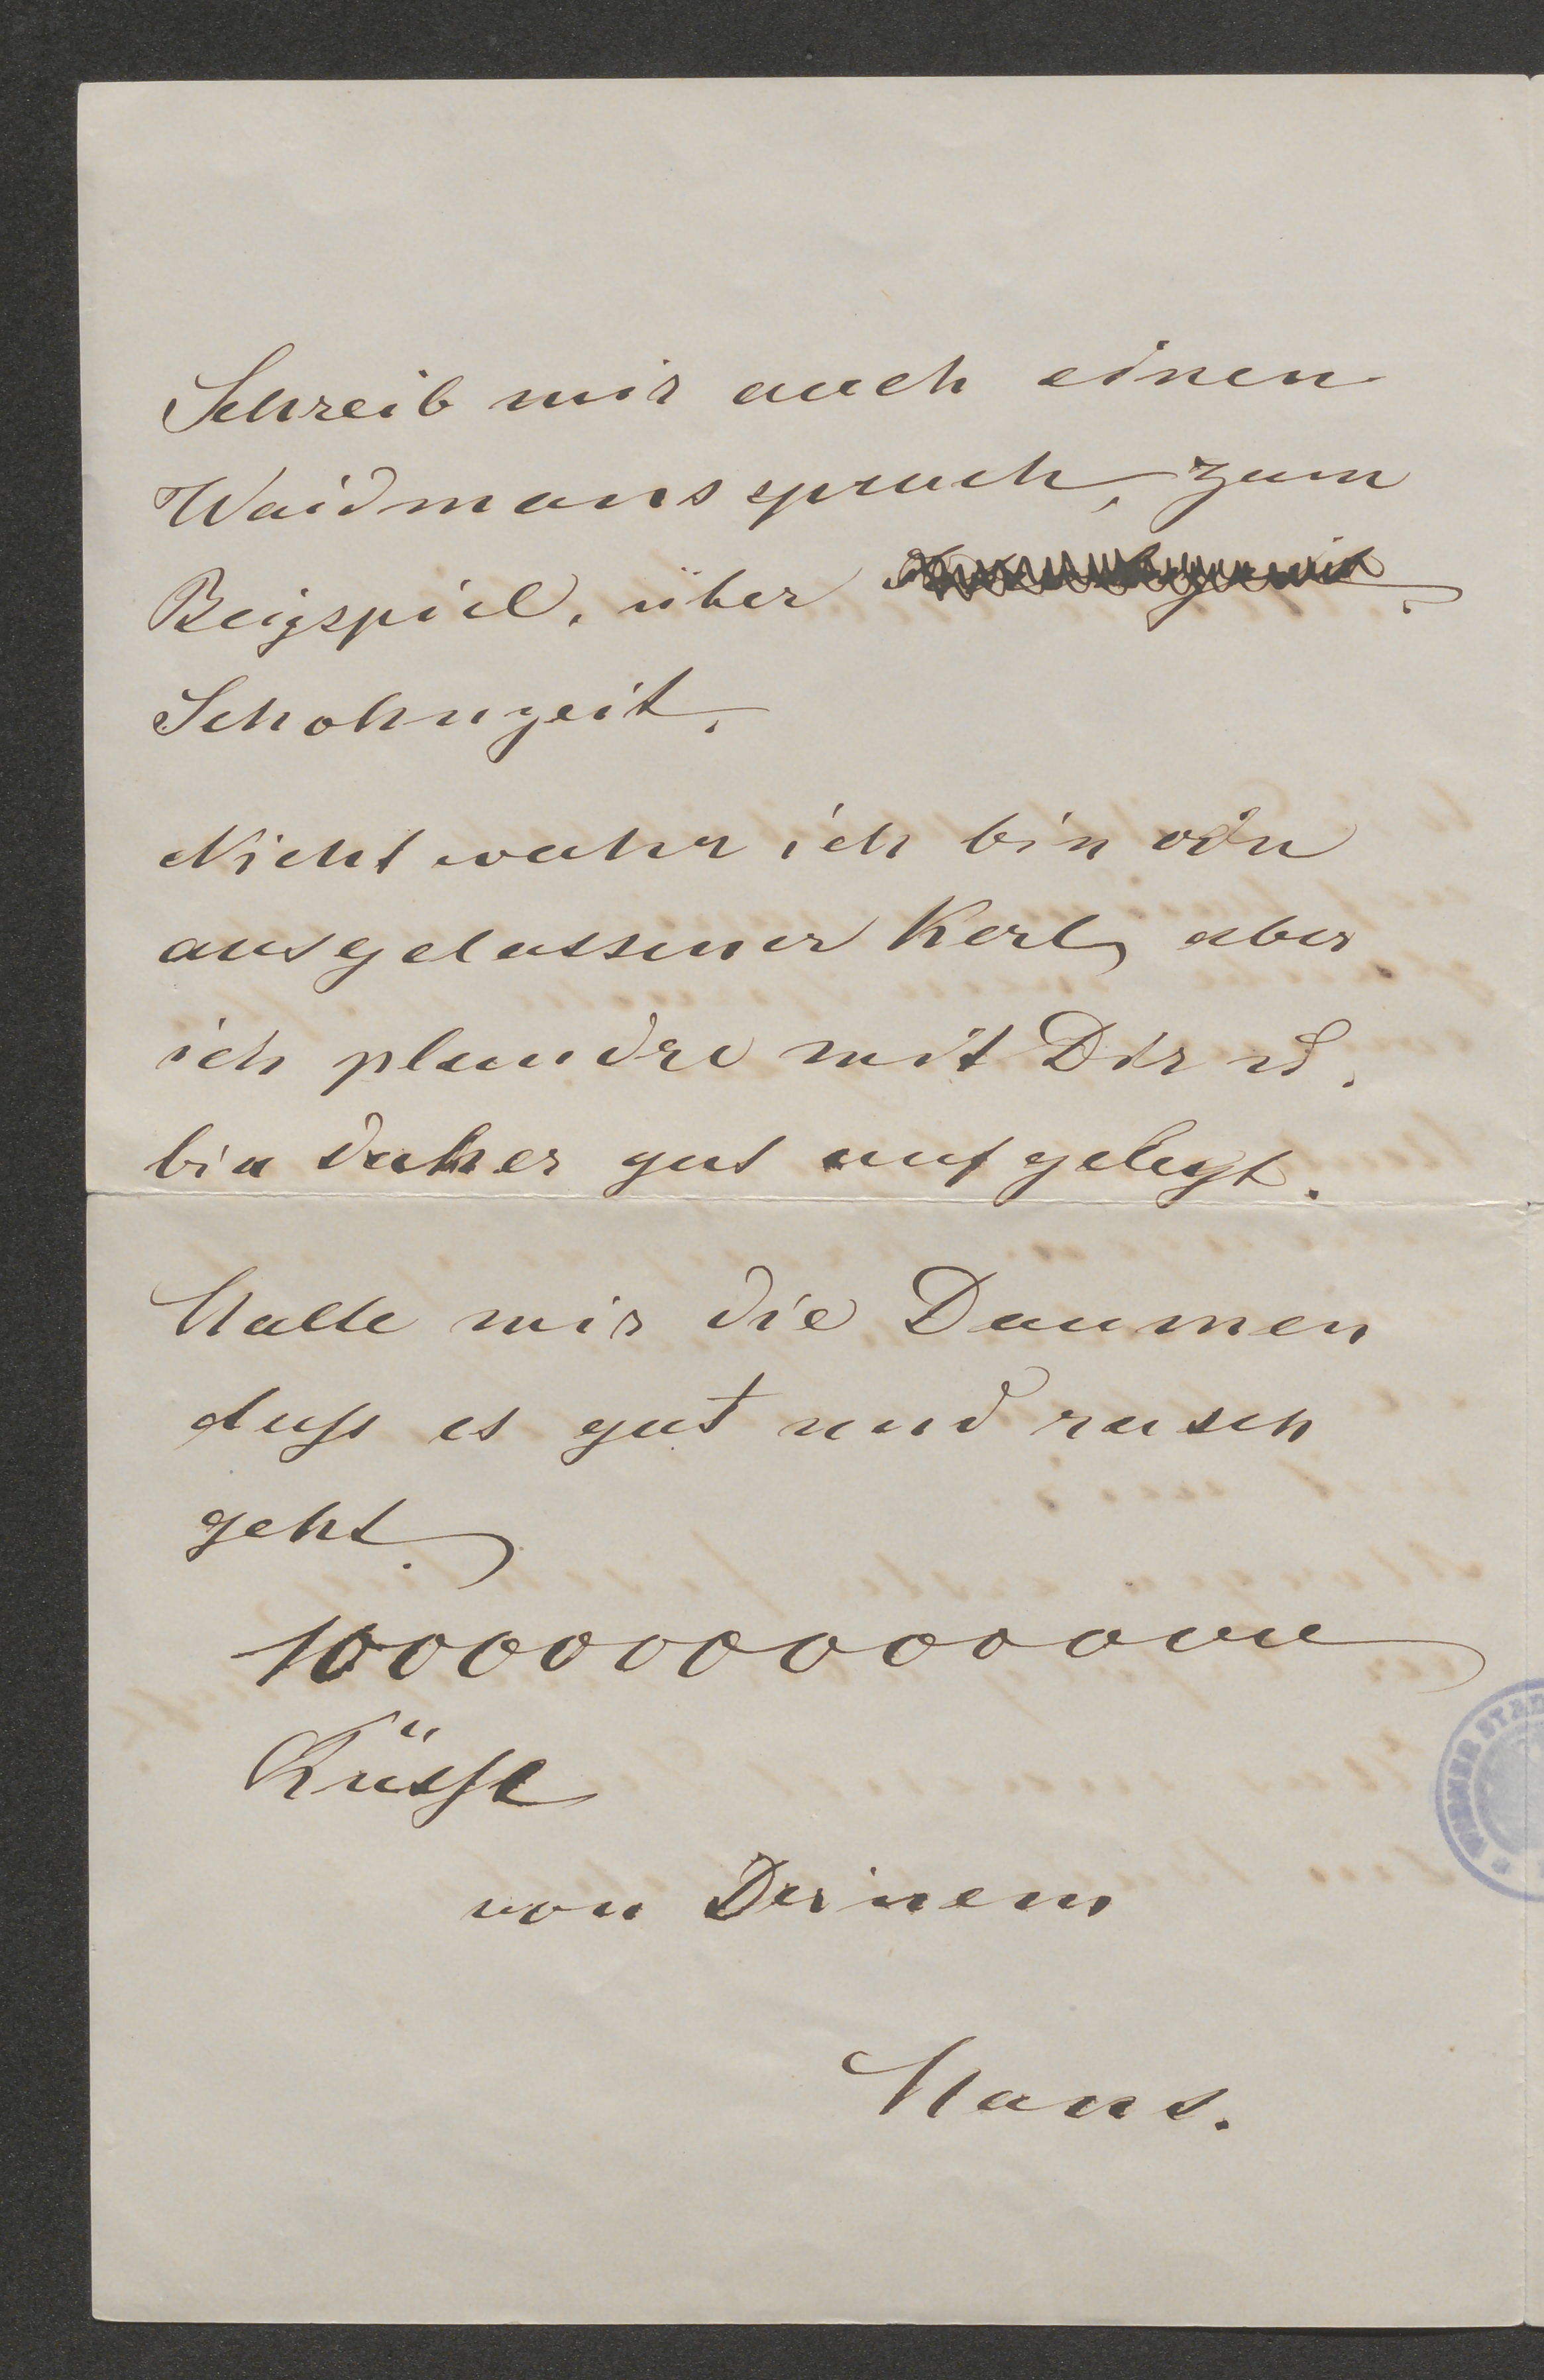 Schreib mir auch einen
Waidmanspruch, zum
Beigspiel, über
Schohnzeit.
Nicht wahr ich bin ein
ausgelassener Kerl, aber
ich plaudre mit Dir u.
bin daher gut aufgelegt.
Halte mir die Daumen
dass es gut und rasch
geht.
Küsse
von Deinem
Hans.
WIENER STAD